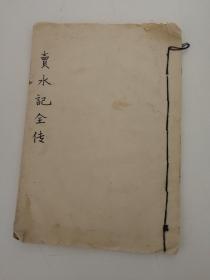 賣水記全传